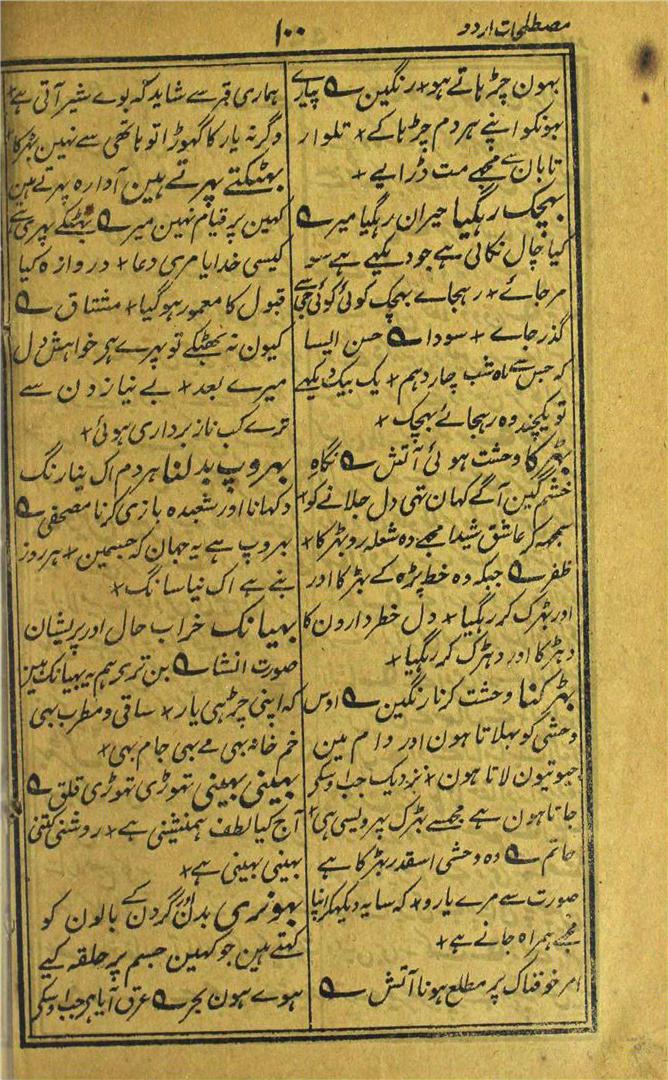 مصطلحات اردو
۱۰۰
بہون چڑہاتے ہو × رنگین ؎ پیارے
بہونکو اپنے ہر دم چڑہا کے × تلوار
تابان سے مجھے مت ڈرایے ×
بہچک رہگیا حیران رہگیا میر ؎
کیا چال نکالی ہے جو دیکہے ہے سو
مر جائے × رہجاے بہچک کوئی کوئی جی سے
گذر جاے × سودا ؎ حسن ایسا
کہ جس سے ماہ شب چاردہم × یک بیک دیکہے
تو یکچند وہ رہجائے بہچک ×
بہڑکا وحشت ہوئی آتش ؎ نگاہِ
خشمگین آگے کہان تہی دل جلانے کو ×
سمجھہ کر عاشق شیدا مجھے وہ شعلہ رو بہڑکا ×
ظفر ؎ جبکہ وہ خط پڑہ کے بہڑکا اور
اور بہڑک کر رہگیا × دل خطر دارون کا
دہڑکا اور دہڑک کر رہگیا ×
بہڑکنا وحشت کرنا رنگین ؎ اوس
وحشی کو بہلاتا ہون اور دام مین
جیوتیون لاتا ہون × نزدیک جب اوسکی
جاتا ہون ہے مجھسے بہڑک پہر ویسی ہی ×
حاتم ؎ وہ وحشی اسقدر بہڑکا ہے
صورت سے مرے یارو × کہ سایہ دیکہکر اپنا
مجھے ہمراہ جانے ہے ×
امر خوفناک پر مطلع ہونا آتش ؎
ہماری قبر سے شاید کہ بوے شیر آتی ہے ×
وگرنہ یار کا گہوڑا تو ہاتھی سے نہین بہڑکا ×
بہٹکتے پہرتے ہین آوارہ پہرتے ہین
کہین پر قیام نہین میر ؎ بہٹکے پہری ہے
کیسی خدایا مری دعا × دروازہ کیا
قبول کا معمور ہو گیا × مشتاق ؎
کیون نہ بھٹکے تو پہرے ہر خواہش دل
میرے بعد × بے نیاز دن سے
ترے کب ناز برداری ہوئی ×
بہروپ بدلنا ہر دم اک نیا رنگ
دکہانا اور شعبدہ بازی کرنا مصحفی ؎
بہروپ ہے یہ جہان کہ جسمین × ہر روز
بنے ہے اک نیا سانگ ×
بہیانک خراب حال اور پریشان
صورت انشا ؎ بن ترے ہم یہ بہیانک ہین
کہ اپنی چڑ ہی یار × ساقی و مطرب بہی
خم خانہ بہی مے بہی جام بہی ×
بہینی بہینی تہوڑی تہوڑی قلق ؎
آج کیا لطف ہمنشینی ہے × روشنی کتنی
بہینی بہینی ہے ×
بہونری بدن گردن کے بالون کو
کہتے ہین جو کہین جسم پر حلقہ کیے
ہوے ہون بحر ؎ عرق آیا ہر جب اوسکی